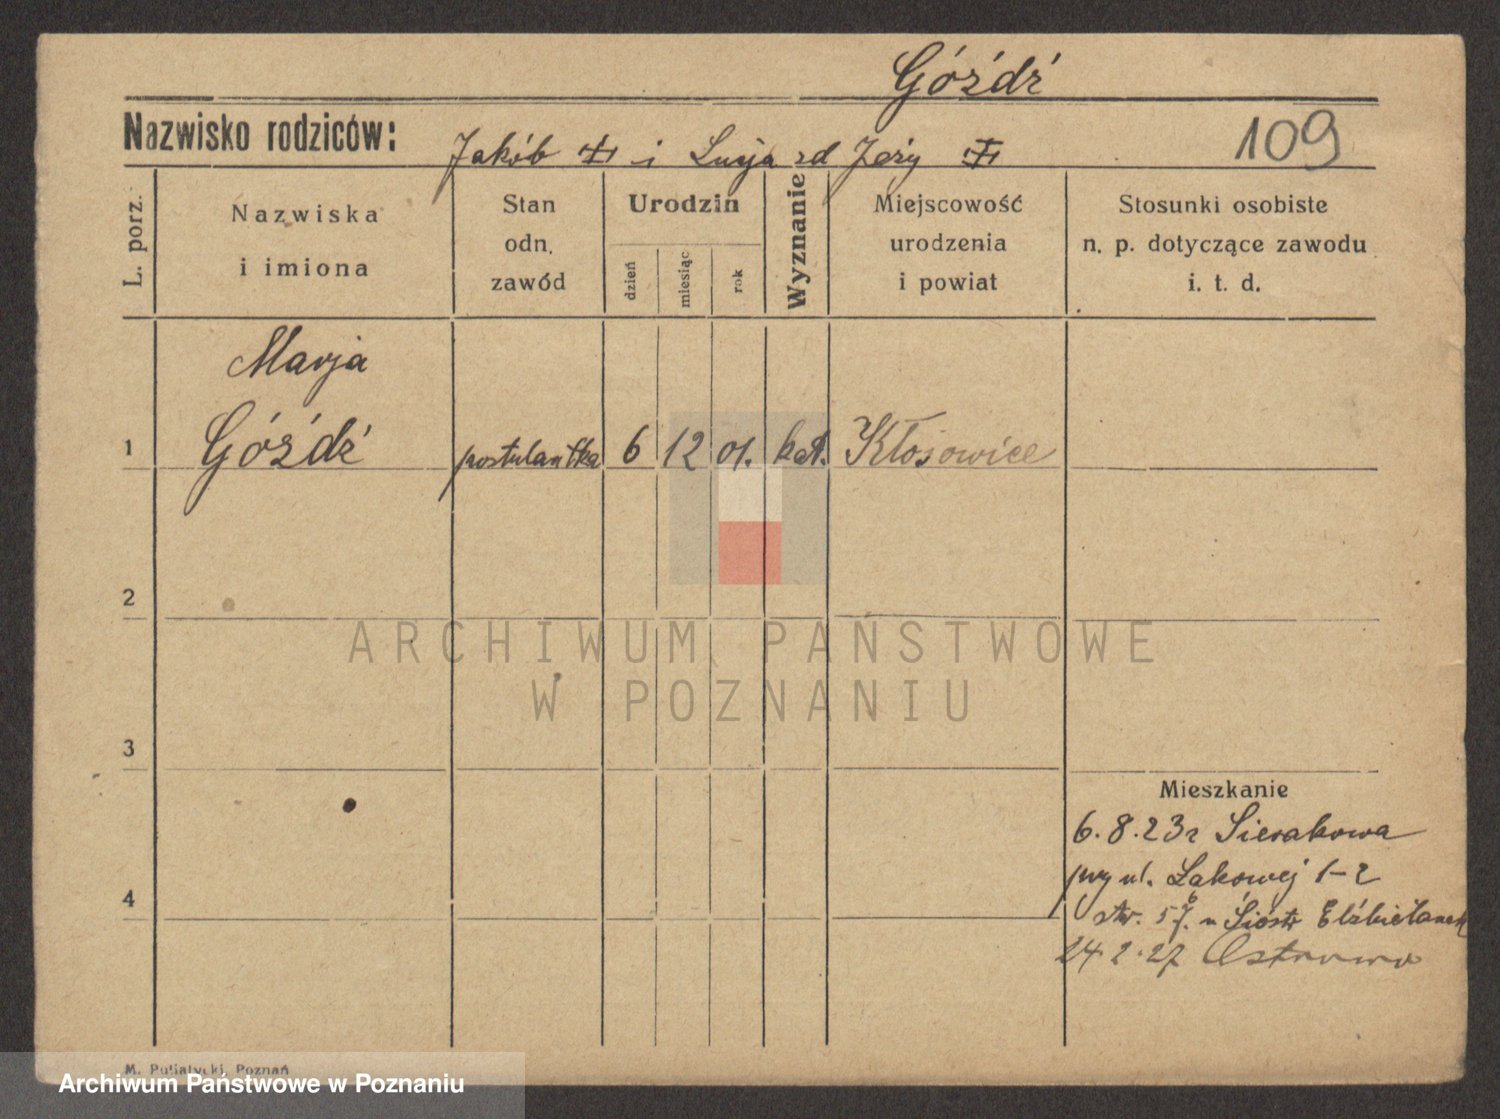 Góźdź
Nazwisko rodziców: Jakób i Lucja zd Jeży 109
L. porz.
Nazwiska
i imiona
Stan
odn.
zawód
Urodzin
dzień
miesiąc
rok
Wyznanie
Miejscowość
urodzenia
i powiat
Stosunki osobiste
n. p. dotyczące zawodu
i. t. d.
Marja
1 Góźdź postulantka 6 12 01. kat. Kłosowice
2
3
4
Mieszkanie
6.8.23r Sierakowa
przy ul. Łąkowej 1-2
u Sióstr Elżbietanek
24.2.27 Ostrowo
ARCHIWUM PAŃSTWOWE
W POZNANIU
M. Putiatycki, Poznań
Archiwum Państwowe w Poznaniu